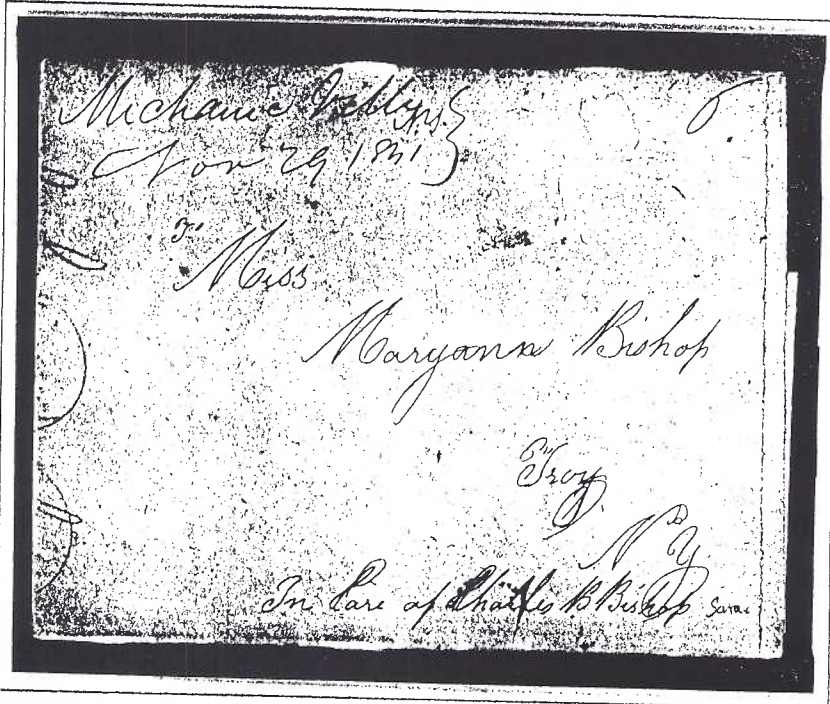 Mechanic Ville NY. 6
Nov 29 1831
To
Miss
Maryann Bishop
Troy
N Y
In Care of Charles B Bishop